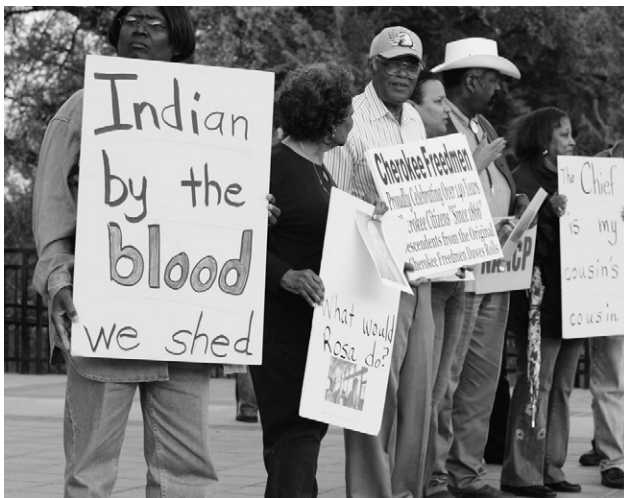 Indian
by the
blood
we shed
What would
Rosa
do?
Cherokee Freedmen
Proudly Celebrating Over 140 Years
Cherokee Citizens Since 1866
Descendents from the Original
Cherokee Freedmen Dawes Rolls
NAACP
The Chief
is my
cousin's
cousin